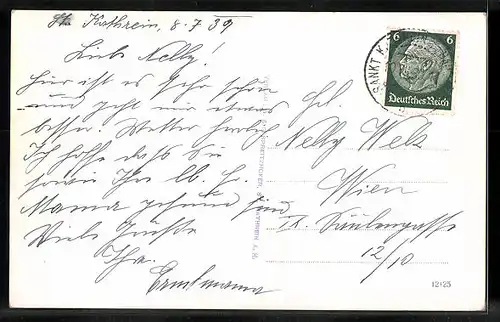 St. Kathrein, 8.7.39
Liebe Nelly!
Hier ist es sehr schön
und geht mir etwas
besser. Wetter herrlich
Ich hoffe daß Sie
sowie Ihr lb. H.
Mama gesund sind
Viele Grüße
Ihr
Frl.
Nelly Welz
Wien
IX. Säulengasse
12/10
6
Deutsches Reich
SANKT K
12125